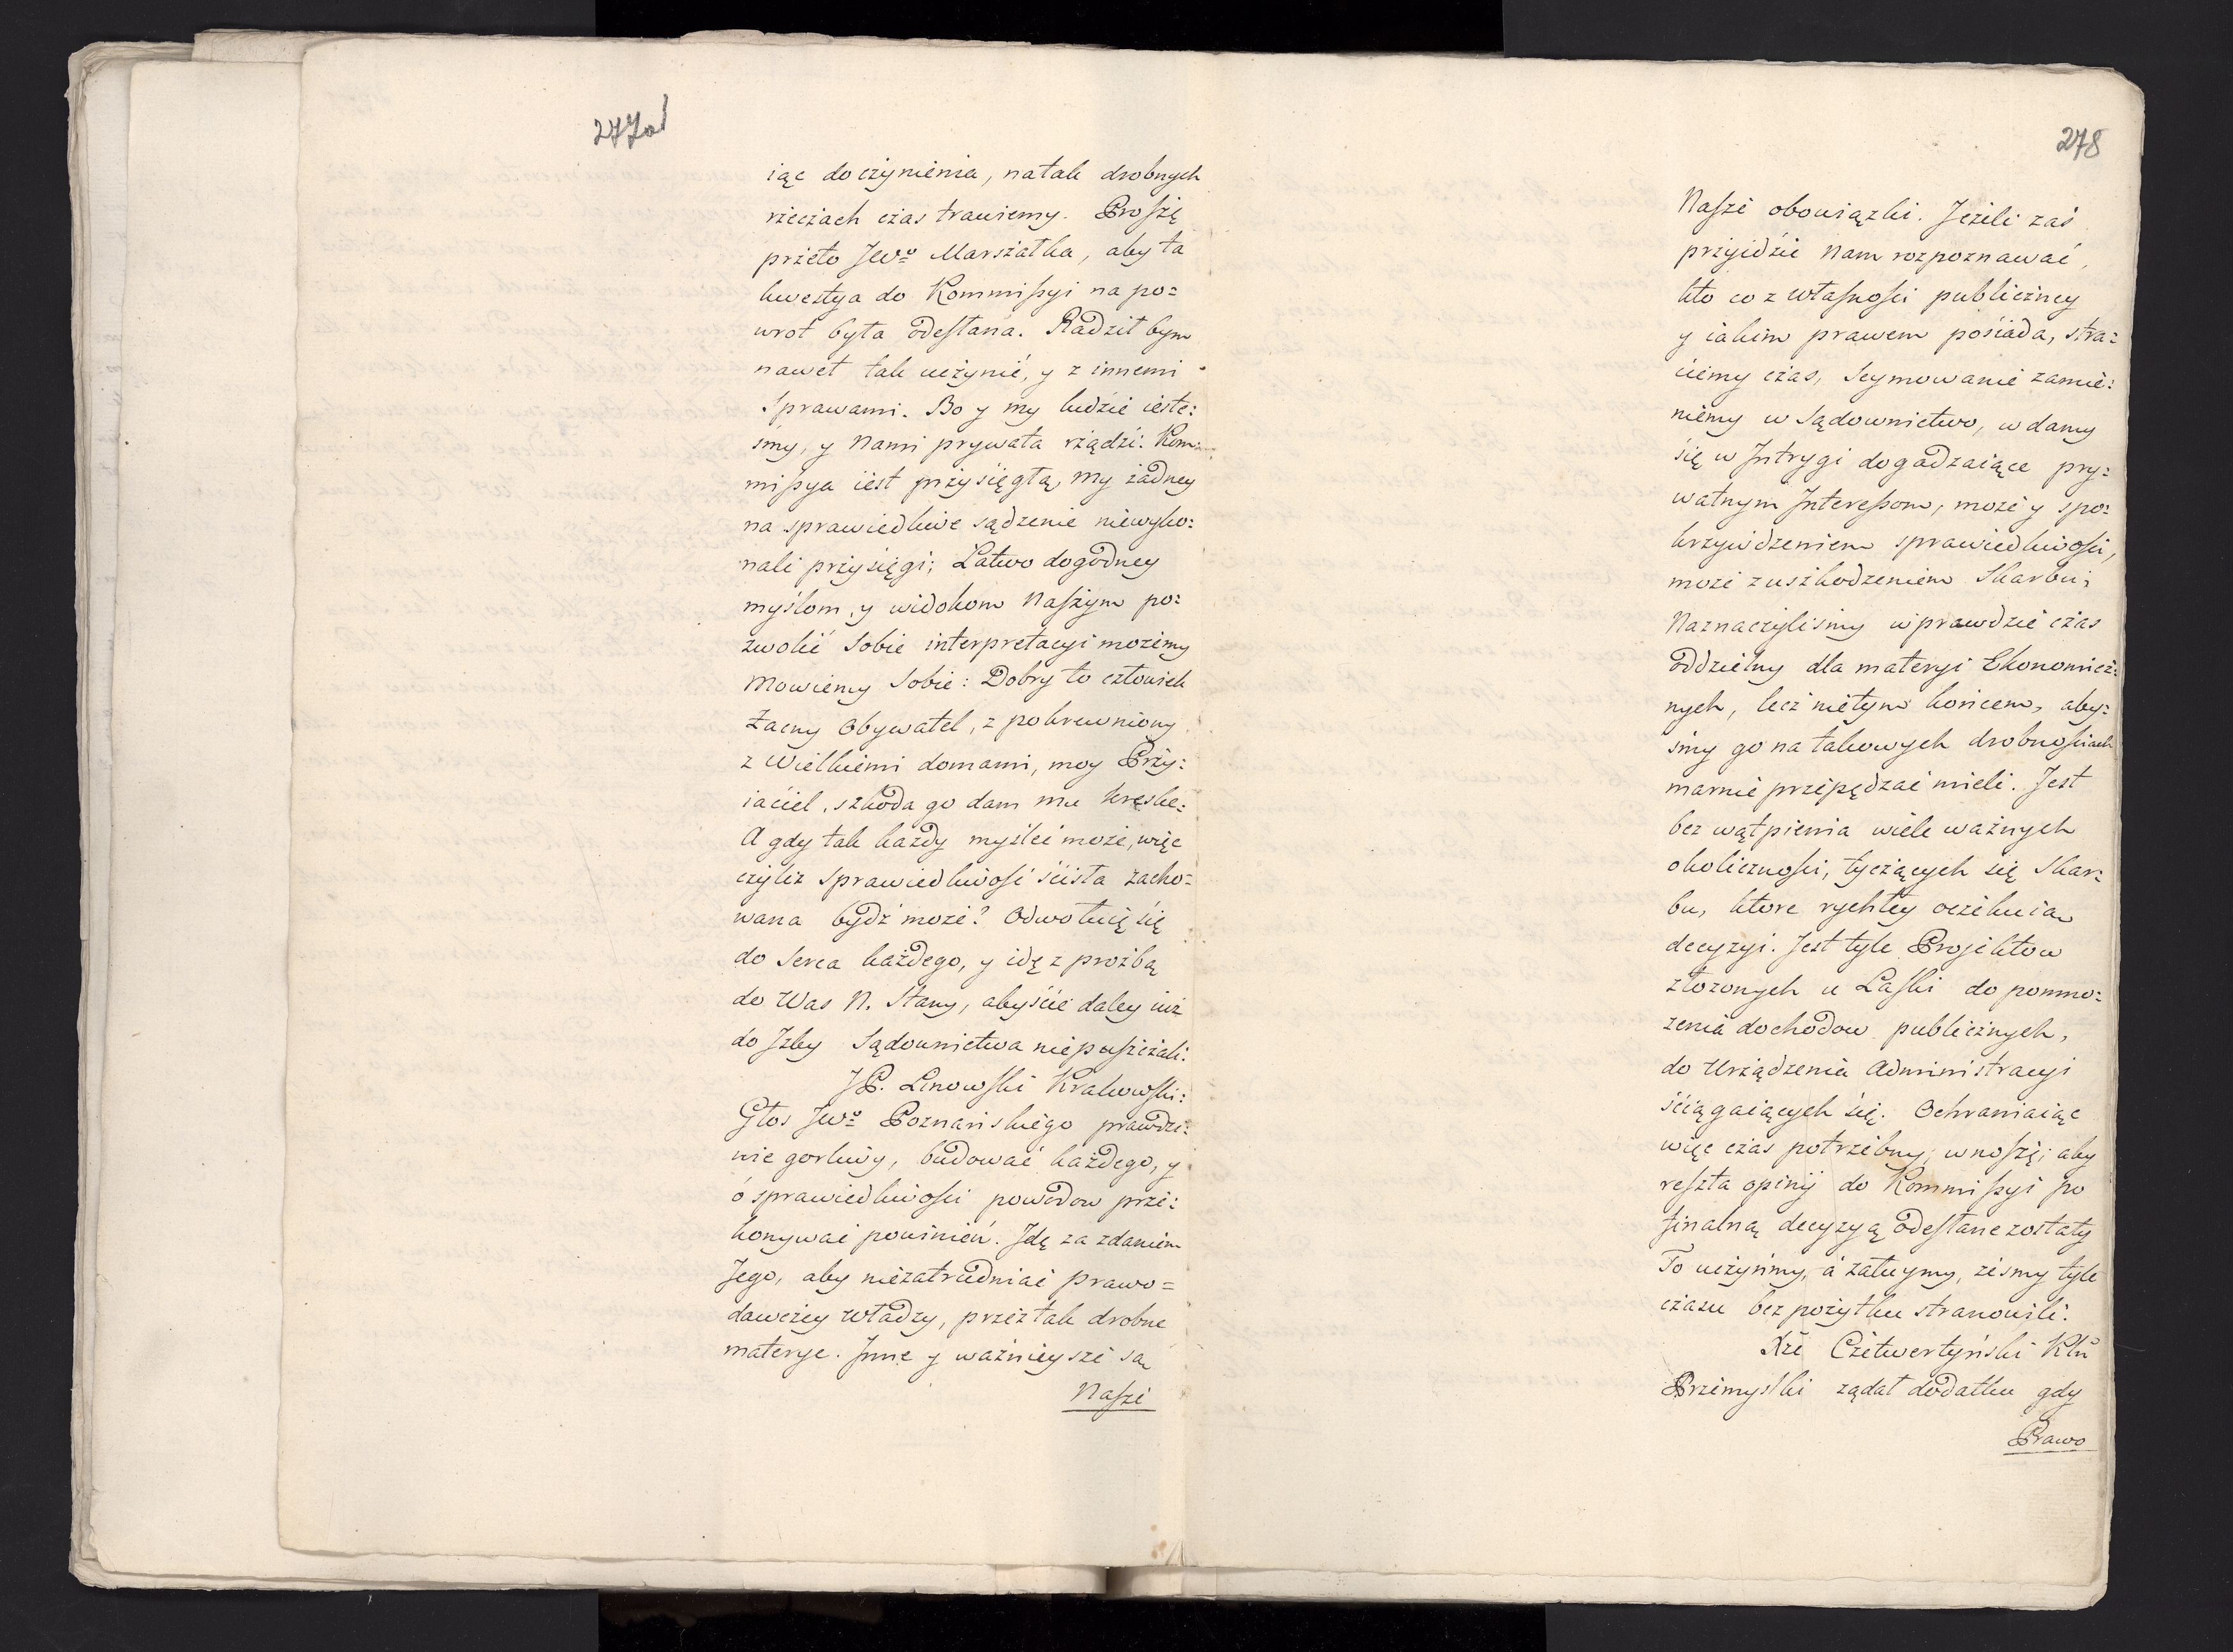 277v
iąc do czynienia, na tak drobnych
rzeczach czas trawiemy. Proszę
przeto JWo Marszałka, aby ta
kwestya do Kommissyi na po=
wrot była odesłana. Radził bym
nawet tak uczynić, y z innemi
Sprawami. Bo y my ludzie ieste=
śmy, y Nami prywata rządzi: Kom=
missya iest przysięgłą, my żadney
na sprawiedliwe sądzenie niewyko=
nali przysięgi; Łatwo dogodney
myślom, y widokom Naszym po=
zwolić Sobie interpretacyi możemy
Mowiemy Sobie: Dobry to człowiek
Zacny Obywatel, z pokrewniony
z Wielkiemi domami, moy Przy=
iaciel, szkoda go dam mu kreske=
A gdy tak każdy myśleć może, więc
czyliż Sprawiedliwość ścisła zacho=
wana bydź może? Odwołuię się
do Serca każdego, y idę z proźbą
do Was N. Stany, abyście daley iuż
do Jzby Sądownictwa niepuszczali:
JP. Linowski Krakowski:
Głos JWo Poznańskiego prawdzi=
wie gorliwy, budować każdego, y
o sprawiedliwości powodow prze=
konywać powinień. Jdę za zdaniem
Jego, aby niezatrudniać prawo=
dawczey władzy, przez tak drobne
materye. Jnne y ważnieysze są
Nasze
278
Nasze obowiązki. Jeżeli zaś
przyidzie Nam rozpoznawać,
kto co z własności publiczney
y iakim prawem posiada, stra=
ciemy czas, Seymowanie zamie=
niemy w Sądownictwo, w damy
się w Jntrygi dogadzaiące pry=
watnym Jnteressom, może y spo=
krzywdzeniem sprawiedliwości,
może z uszkodzeniem Skarbu;
Naznaczylismy wprawdzie czas
oddzielny dla materyi Ekonomicz=
nych, lecz nietym końcem, aby=
śmy go na takowych drobnościach
marnie przepędzać mieli. Jest
bez wątpienia wiele ważnych
okoliczności, tyczących się Skar=
bu, ktore rychley oczekuia
decyzyi. Jest tyle Projektow
złożonych u Laski do pomno=
żenia dochodow publicznych,
do Urządzenia Administracyi
ściągaiących się. Ochraniaiąc
więc czas potrzebny, wnoszę; aby
reszta opinij do Kommissyi po
finalną decyzyą odesłane zostały
To uczyńmy, a żałuymy, żesmy tyle
czasu bez pożytku stranowili.
Xże Czetwertyński Kłń
Przemyslki żądał dodatku gdy
Prawo